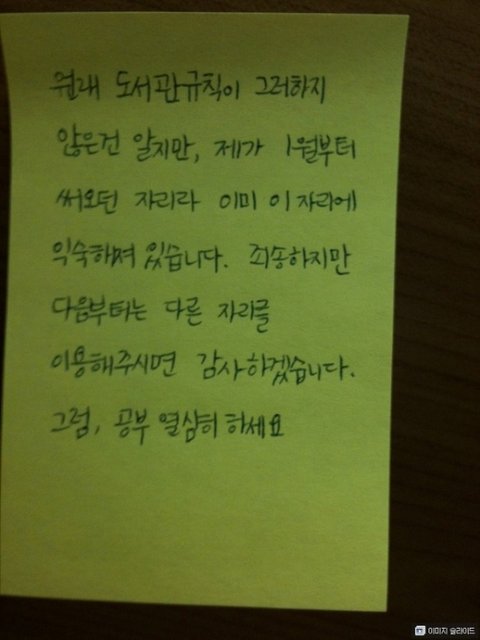 원래 도서관규칙이 그러하지
않은건 알지만, 제가 1월부터
써오던 자리라 이미 이 자리에
익숙하져 있습니다. 죄송하지만
다음부터는 다른 자리를
이용해주시면 감사하겠습니다.
그럼, 공부 열심히 하세요
이미지 슬라이드